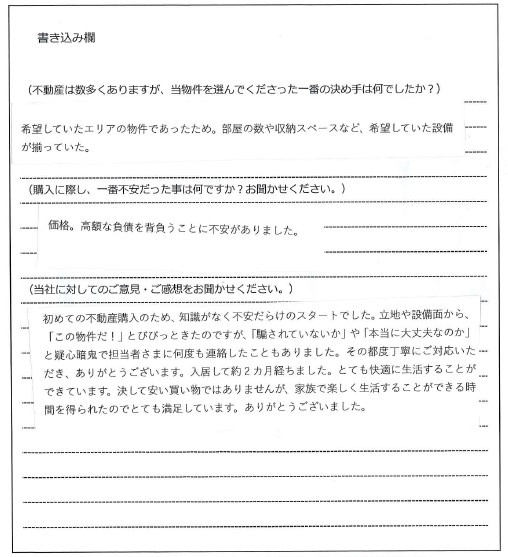 書き込み欄
(不動産は数多くありますが、当物件を選んでくださった一番の決め手は何でしたか？)
希望していたエリアの物件であったため。部屋の数や収納スペースなど、希望していた設備
が揃っていた。
(購入に際し、一番不安だった事は何ですか？お聞かせください。)
価格。高額な負債を背負うことに不安がありました。
(当社に対してのご意見・ご感想をお聞かせください。)
初めての不動産購入のため、知識がなく不安だらけのスタートでした。立地や設備面から、
「この物件だ！」とびびっときたのですが、「騙されていないか」や「本当に大丈夫なのか」
と疑心暗鬼で担当者さまに何度も連絡したこともありました。その都度丁寧にご対応いた
だき、ありがとうございます。入居して約２カ月経ちました。とても快適に生活することが
できています。決して安い買い物ではありませんが、家族で楽しく生活することができる時
間を得られたのでとても満足しています。ありがとうございました。